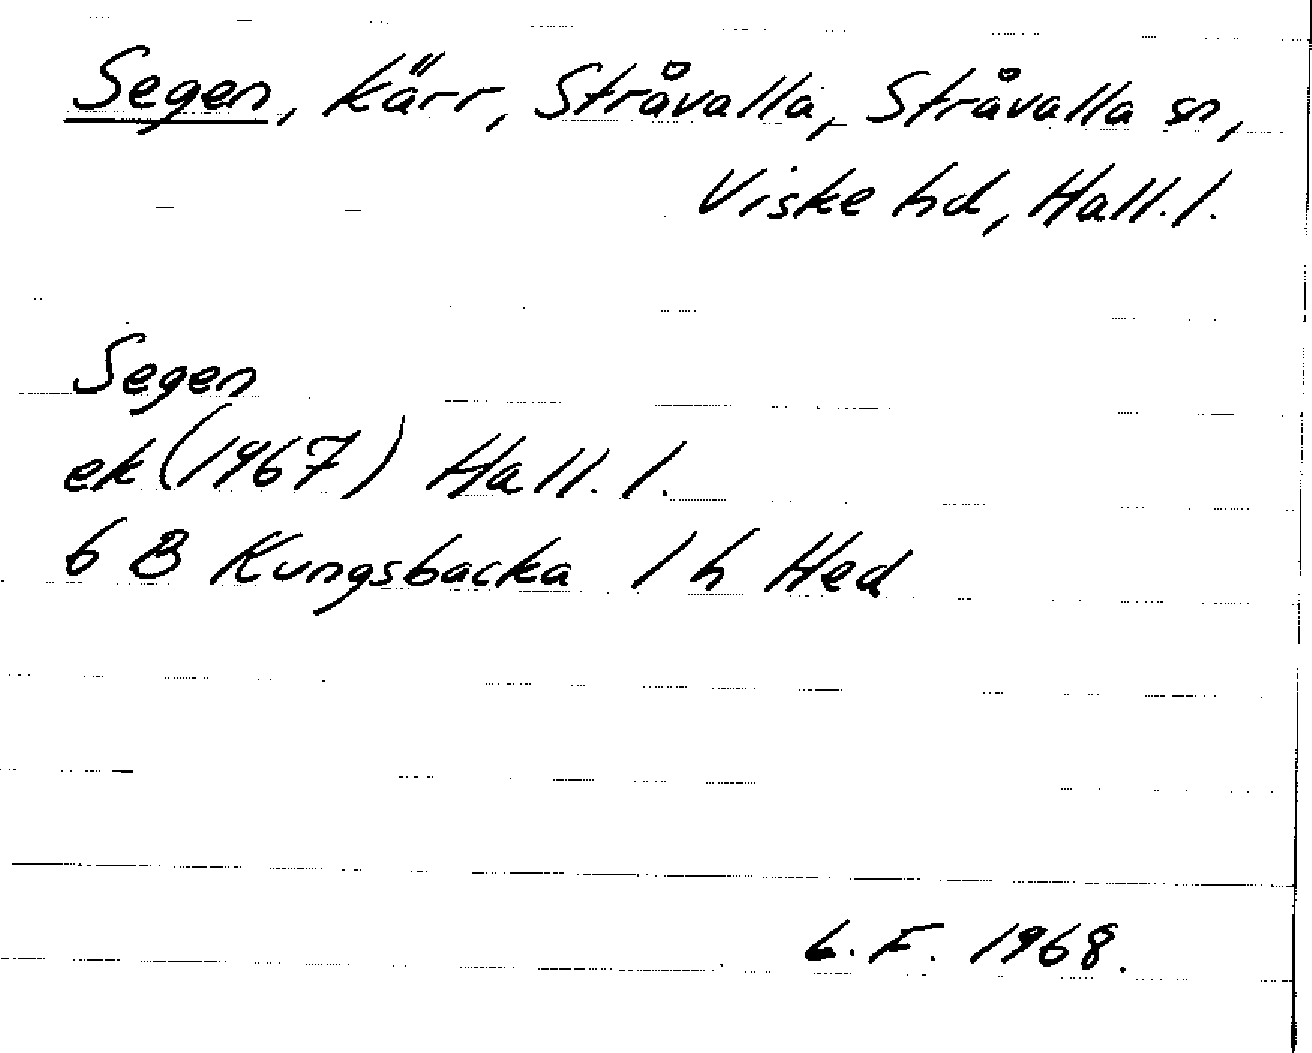 Segen, kärr, Stråvalla, Stråvalla sn,
Viske hd, Hall. l.
Segen
ek (1967) Hall. l.
6 B Kungsbacka 1 h Hed
L. F. 1968.